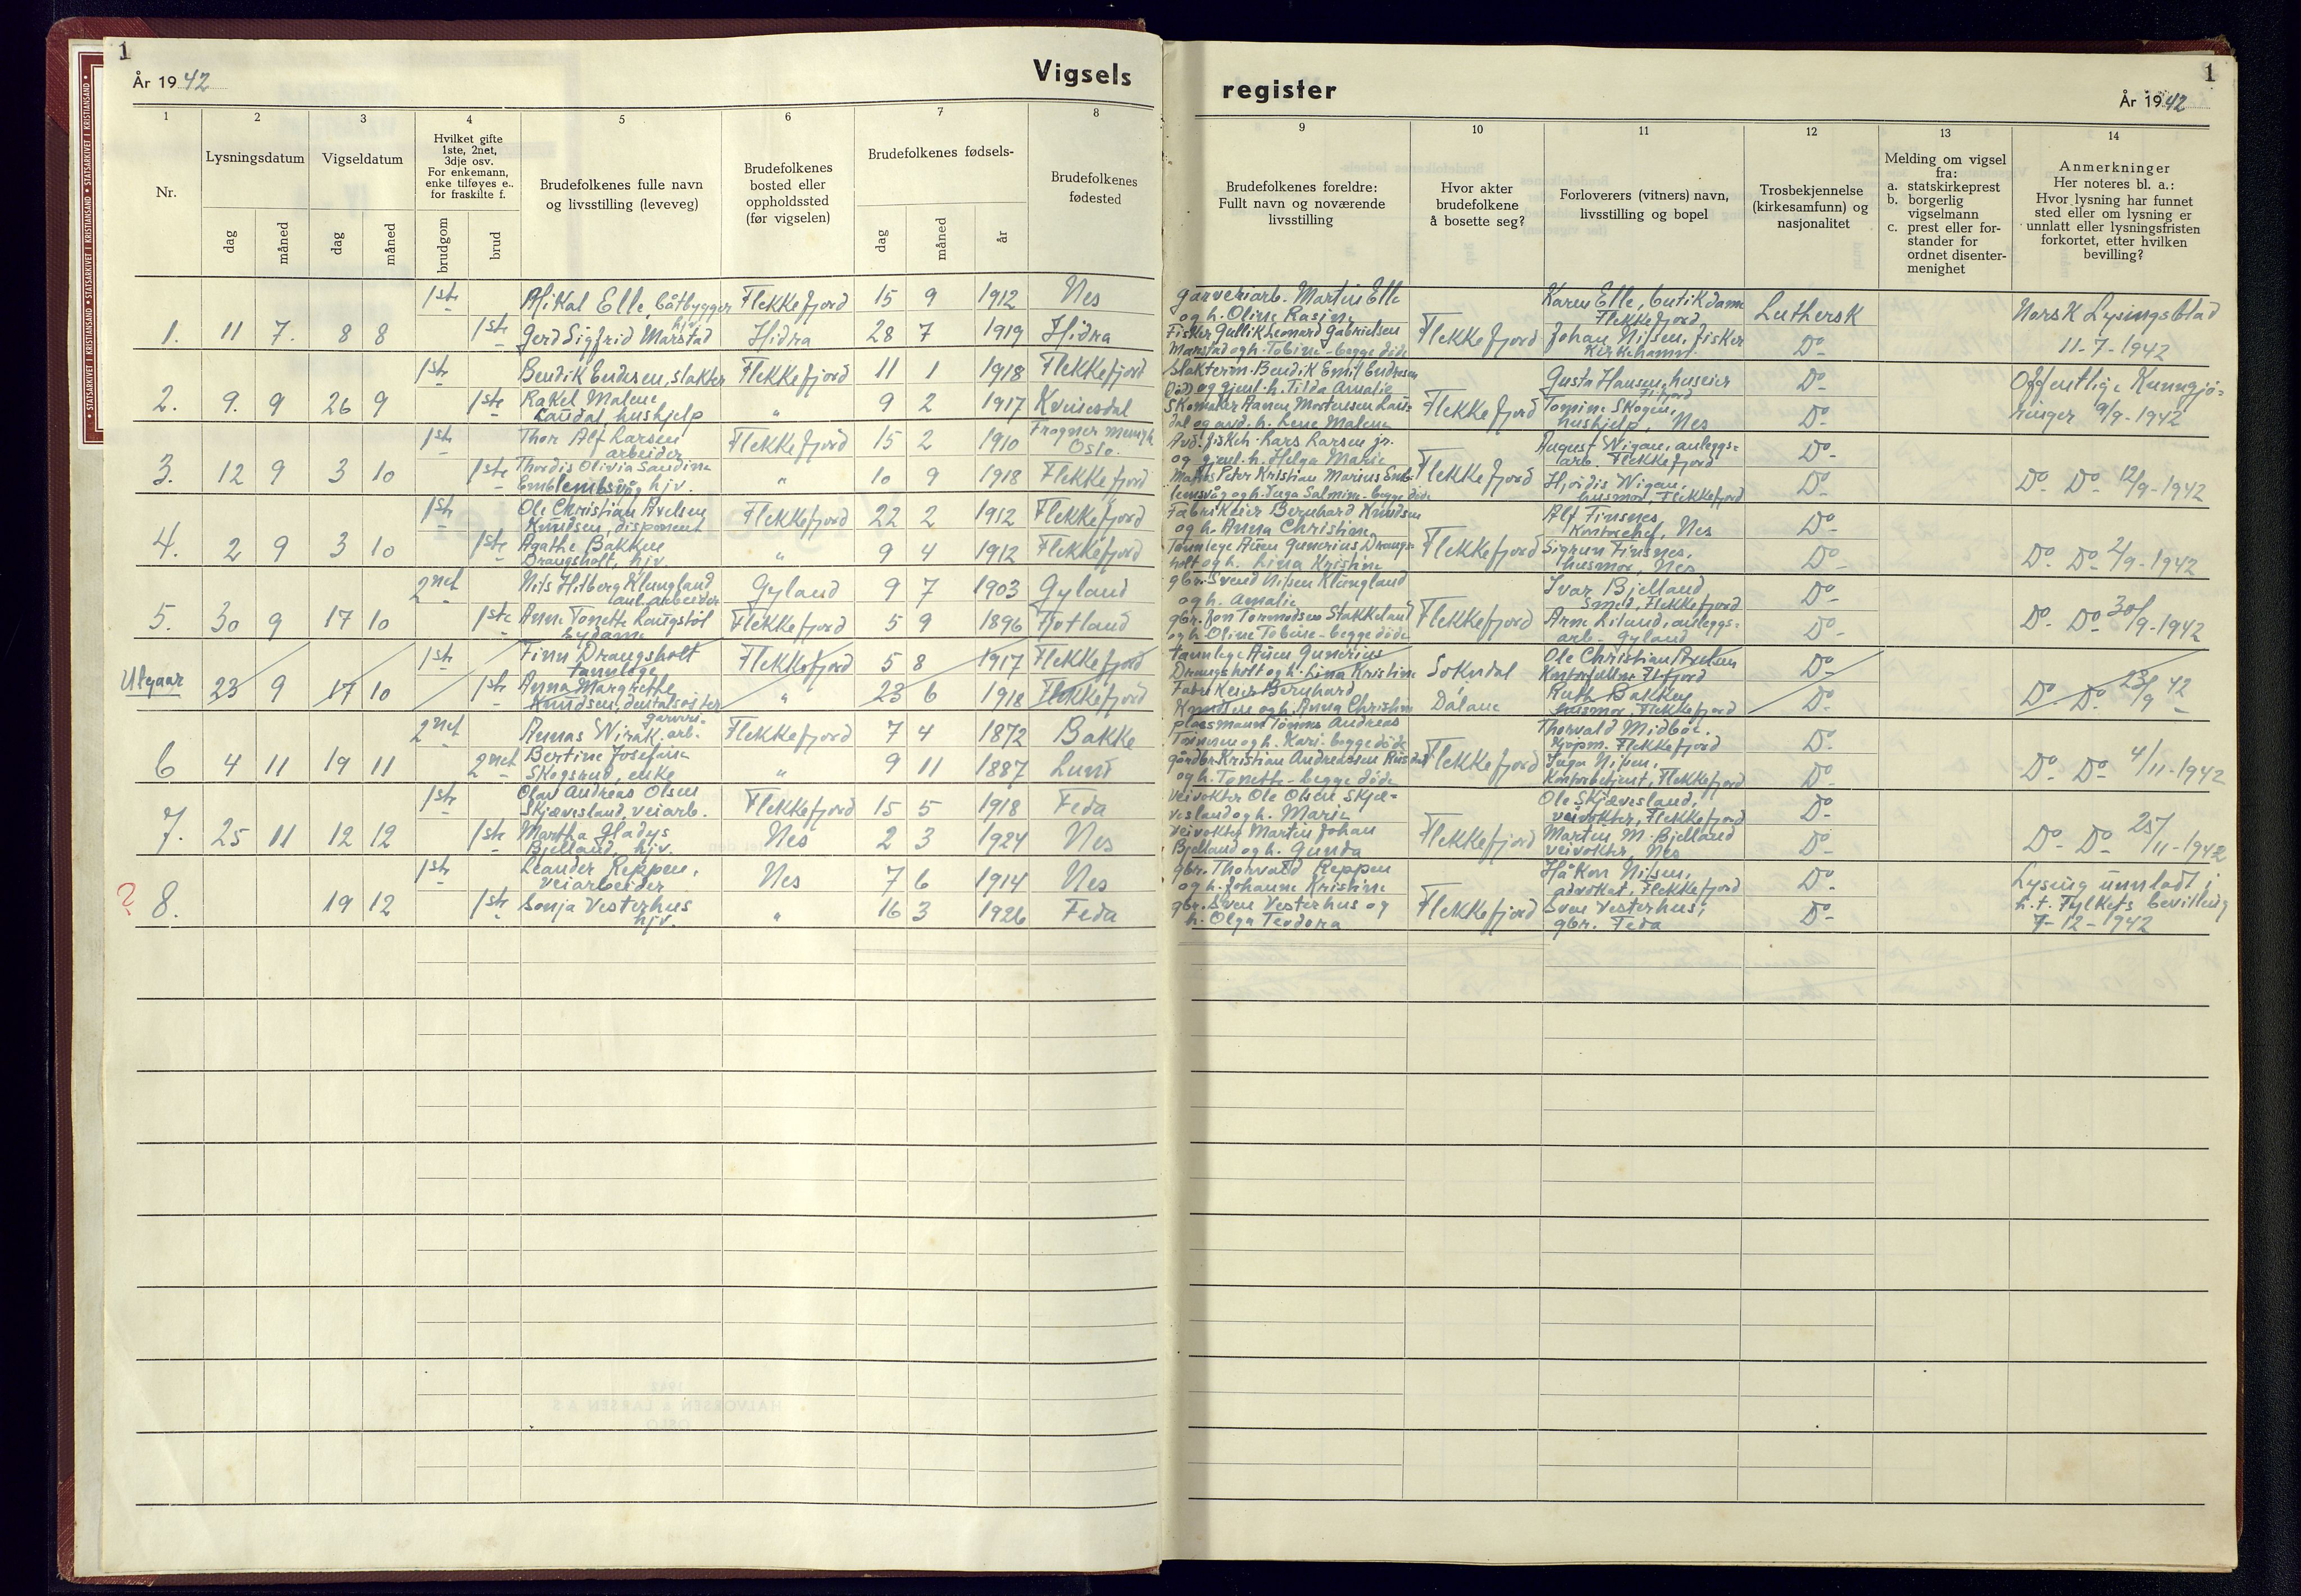 1
År 1942
Vigsels
register
1
År 1942
STATSARKIVET I KRISTIANSAND • STATSARKIVET I KRISTIANSAND • STATSARKIVET I KRISTIANSAND
1
2
3
4
5
6
7
8
9
10
11
12
13
14
Nr.
Lysningsdatum
dag
måned
Vigseldatum
dag
måned
Hvilket gifte
1ste, 2net,
3dje osv.
For enkemann,
enke tilføyes e..
for fraskilte f.
brudgom
brud
Brudefolkenes fulle navn
og livsstilling (leveveg)
Brudefolkenes
bosted eller
oppholdssted
(før vigselen)
Brudefolkenes fødsels-
dag
måned
år
Brudefolkenes
fødested
Brudefolkenes foreldre:
Fullt navn og noværende
livsstilling
Hvor akter
brudefolkene
å bosette seg?
Forloverers (vitners) navn,
livsstilling og bopel
Trosbekjennelse
(kirkesamfunn) og
nasjonalitet
Melding om vigsel
fra:
a. statskirkeprest
b. borgerlig
vigselmann
c. prest eller for-
stander for
ordnet disenter-
menighet
Anmerkninger
Her noteres bl. a.:
Hvor lysning har funnet
sted eller om lysning er
unnlatt eller lysningsfristen
forkortet, etter hvilken
bevilling?
1ste Mikal Elle, båtbygger Flekkefjord 15 9 1912 Nes
1. 11 7. 8 8 1ste Gerd Sigfrid Marstad hjv. Hidra 28 7 1919 Hidra
garveriarb. Martin Elle
og h. Oline Rasine
Fisker Gullik Leonard Gabrielsen
Marstad og h. Tobine - begge döde
Flekkefjord
Karen Elle, butikdame
Flekkefjord
Johan Nilsen, fisker
Kirkehamn.
Luthersk
Do
Norsk Lysingsblad
11-7-1942
1ste Bendik Endresen, slakter Flekkefjord 11 1 1918 Flekkefjord
2. 9. 9 26 9 1ste Rakel Malene
Laudal, hushjelp " 9 2 1917 Kvinesdal
Slakterm. Bendik Emil Endresen
(död) og gjenl. h. Tilda Amalie
Skomaker Aanen Mortensen Lau=
dal og avd. h. Lene Malene
Flekkefjord
Gusta Hansen, huseier
Fl.fjord
Tomine Skogen,
hushjelp, Nes
Do
Do
Offentlige Kunngjö=
ringer 9/9-1942
1ste Thor Alf Larsen
arbeider Flekkefjord 15 2 1910 Frogner menigh.
Oslo.
3. 12 9 3 10 1ste Thordis Olivia Sandine
Emblemsvåg hjv. " 10 9 1918 Flekkefjord
Avd. fiskeh. Lars Larsen jr.
og gjenl. h. Helga Marie
Peter Kristian Marius Emb=
lemsvåg og h. Inga Salmine - begge döde
Flekkefjord
August Wigan, anleggs=
arb. Flekkefjord
Hjördis Wigan,
husmor, Flekkefjord
Do
Do
Do Do 12/9-1942
1ste Ole Christian Axelsen
Knudsen, disponent Flekkefjord 22 2 1912 Flekkefjord
4. 2 9 3 10 1ste Agathe Bakken
Drangsholt, hjv. " 9 4 1912 Flekkefjord
Fabrikeier Bernhard Knudsen
og h. Anna Christine
Tannlege Ånen Gunerius Drangs=
holt og h. Lina Kristine
Flekkefjord
Alf Finsnes,
Kontorchef, Nes
Sigrun Finsnes,
husmor, Nes
Do
Do
Do Do 2/9-1942
2net Nils Hilberg Klungland
anl. arbeider Gyland 9 7 1903 Gyland
5. 30 9 17 10 1ste Anne Tonette Langstöl
Sydame Flekkefjord 5 9 1896 Fjotland
gbr. Svend Nilsen Klungland
og h. Amalie
gbr. Jon Tormodsen Stakkeland
og h. Oline Tobine - begge döde
Flekkefjord
Ivar Bjelland
Smed, Flekkefjord
Arne Liland, anleggs=
arb. Gyland
Do
Do
Do Do 30/9-1942
1ste Finn Drangsholt
tannlege Flekkefjord 5 8 1917 Flekkefjord
Utgaar 23 9 17 10 1ste Anna Margrethe
Knudsen, dentalsöster " 23 6 1918 Flekkefjord
tannlege Ånen Gunerius
Drangsholt og h. Lina Kristine
Fabrikeier Bernhard
Knudsen og h. Anna Christine
Sokndal
Dalane
Ole Christian Axelsen
Kontorfullm. Fl.fjord
Ruth Bakken
husmor, Flekkefjord
Do
Do
Do Do 23/9 42
2net Annas Wirak garveri-
arb. Flekkefjord 7 4 1872 Bakke
6 4 11 19 11 2net Bertine Josefine
Skogsrud, enke " 9 11 1887 Lund
plassmann Tönnes Andreas
Tönnesen og h. Kari - begge döde
gårdbr. Kristian Andreassen Rusdal
og h. Tonette - begge döde
Flekkefjord
Thorvald Midböe.
Kjøpm. Flekkefjord
Inga Nilsen,
Kontorbetjent, Flekkefjord
Do
Do
Do Do 4/11-1942
1ste Olav Andreas Olsen
Skjævesland, veiarb. Flekkefjord 15 5 1918 Feda
7. 25 11 12 12 1ste Martha Gladys
Bjelland, hjv. Nes 2 3 1924 Nes
Veivokter Ole Olsen Skjæ=
vesland og h. Marie
veivokter Martin Johan
Bjelland og h. Gunda
Flekkefjord
Ole Skjævesland,
veivokter, Flekkefjord
Martin M. Bjelland
veivokter, Nes
Do
Do
Do Do 25/11-1942
1ste Leander Reppen,
veiarbeider Nes 7 6 1914 Nes
? 8. 19 12 1ste Sonja Vesterhus
hjv. " 16 3 1926 Feda
gbr. Thorvald Reppen
og h. Johanne Kristine
gbr. Sven Vesterhus og
h. Olga Teodora
Flekkefjord
Håkon Nilsen,
advokat, Flekkefjord
Sven Vesterhus,
gbr. Feda
Do
Do
Lysing unnlatt i
h.t. Fylkets bevilling
7-12-1942